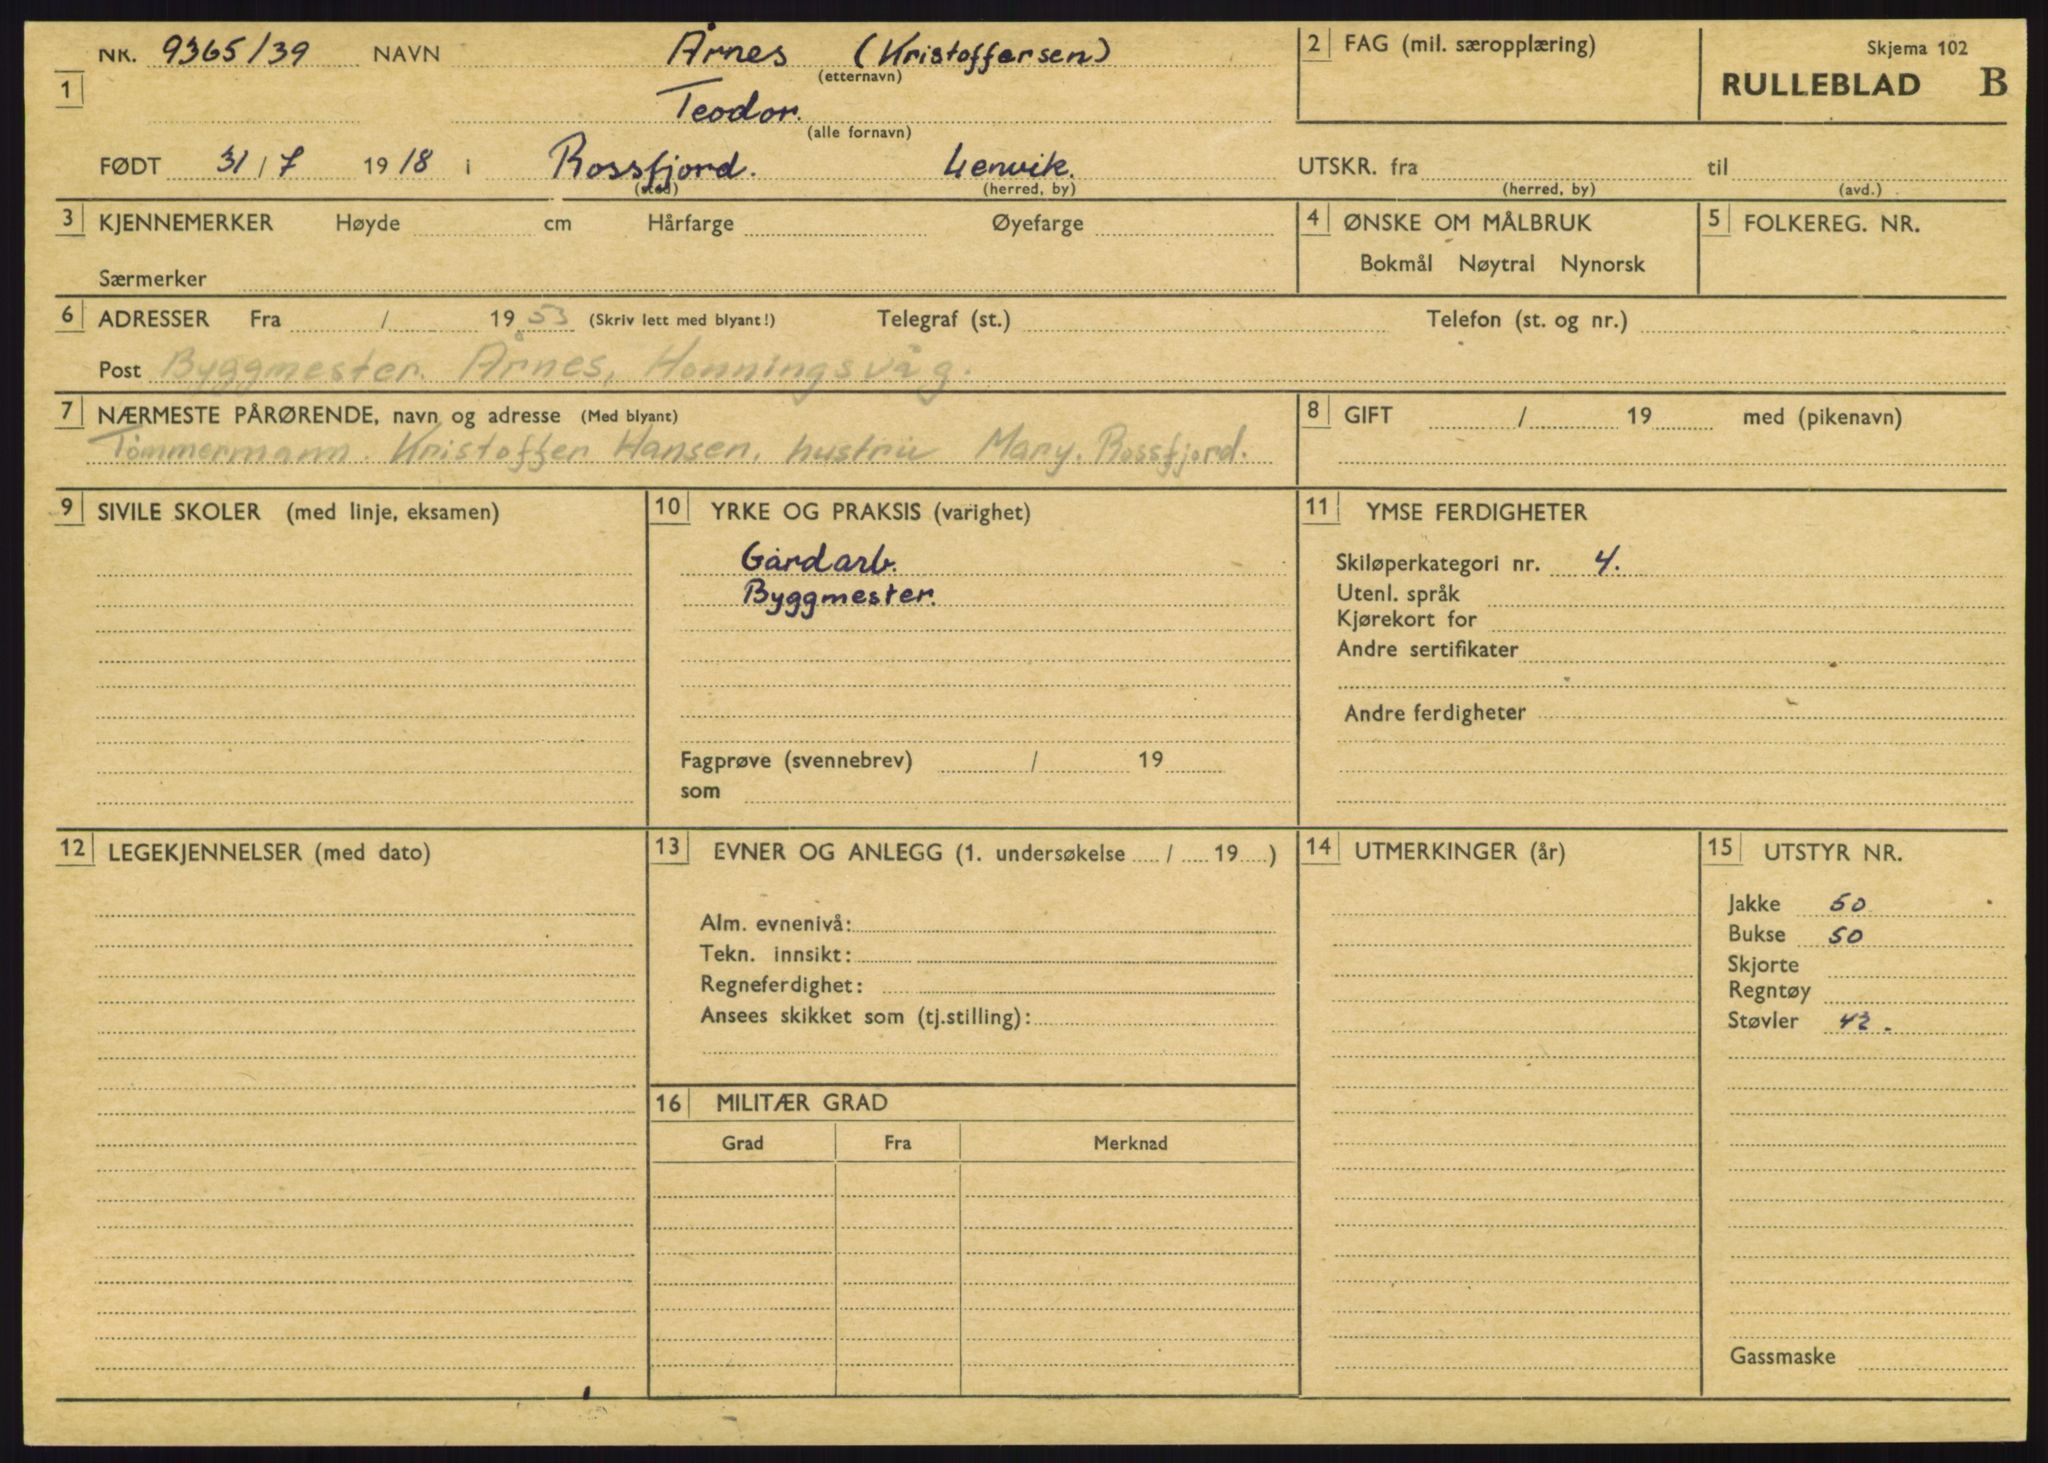 NR. 9365/39 NAVN Årnes (Kristoffersen)
(etternavn)
1
Teodor.
(alle fornavn)
FØDT 31/7 1918 i Rossfjord. Lenvik.
(sted) (herred, by)
2 FAG (mil. særopplæring)
Skjema 102
RULLEBLAD B
UTSKR. fra til
(herred, by) (avd.)
3 KJENNEMERKER Høyde cm Hårfarge Øyefarge
Særmerker
4 ØNSKE OM MÅLBRUK
Bokmål Nøytral Nynorsk
5 FOLKEREG. NR.
6 ADRESSER Fra / 1953 (Skriv lett med blyant!) Telegraf (st.) Telefon (st. og nr.)
Post Byggmester. Årnes, Honningsvåg.
7 NÆRMESTE PÅRØRENDE, navn og adresse (Med blyant)
Tømmermann. Kristoffer Hansen, hustru Mary. Rossfjord.
8 GIFT / 19 med (pikenavn)
9 SIVILE SKOLER (med linje, eksamen)
10 YRKE OG PRAKSIS (varighet)
Gårdarb.
Byggmester.
Fagprøve (svennebrev) / 19
som
11 YMSE FERDIGHETER
Skiløperkategori nr. 4.
Utenl. språk
Kjørekort for
Andre sertifikater
Andre ferdigheter
12 LEGEKJENNELSER (med dato)
13 EVNER OG ANLEGG (1. undersøkelse / 19 )
Alm. evnenivå:
Tekn. innsikt:
Regneferdighet:
Ansees skikket som (tj.stilling):
14 UTMERKINGER (år)
15 UTSTYR NR.
Jakke 50
Bukse 50
Skjorte
Regntøy
Støvler 42.
Gassmaske
16 MILITÆR GRAD
Grad Fra Merknad